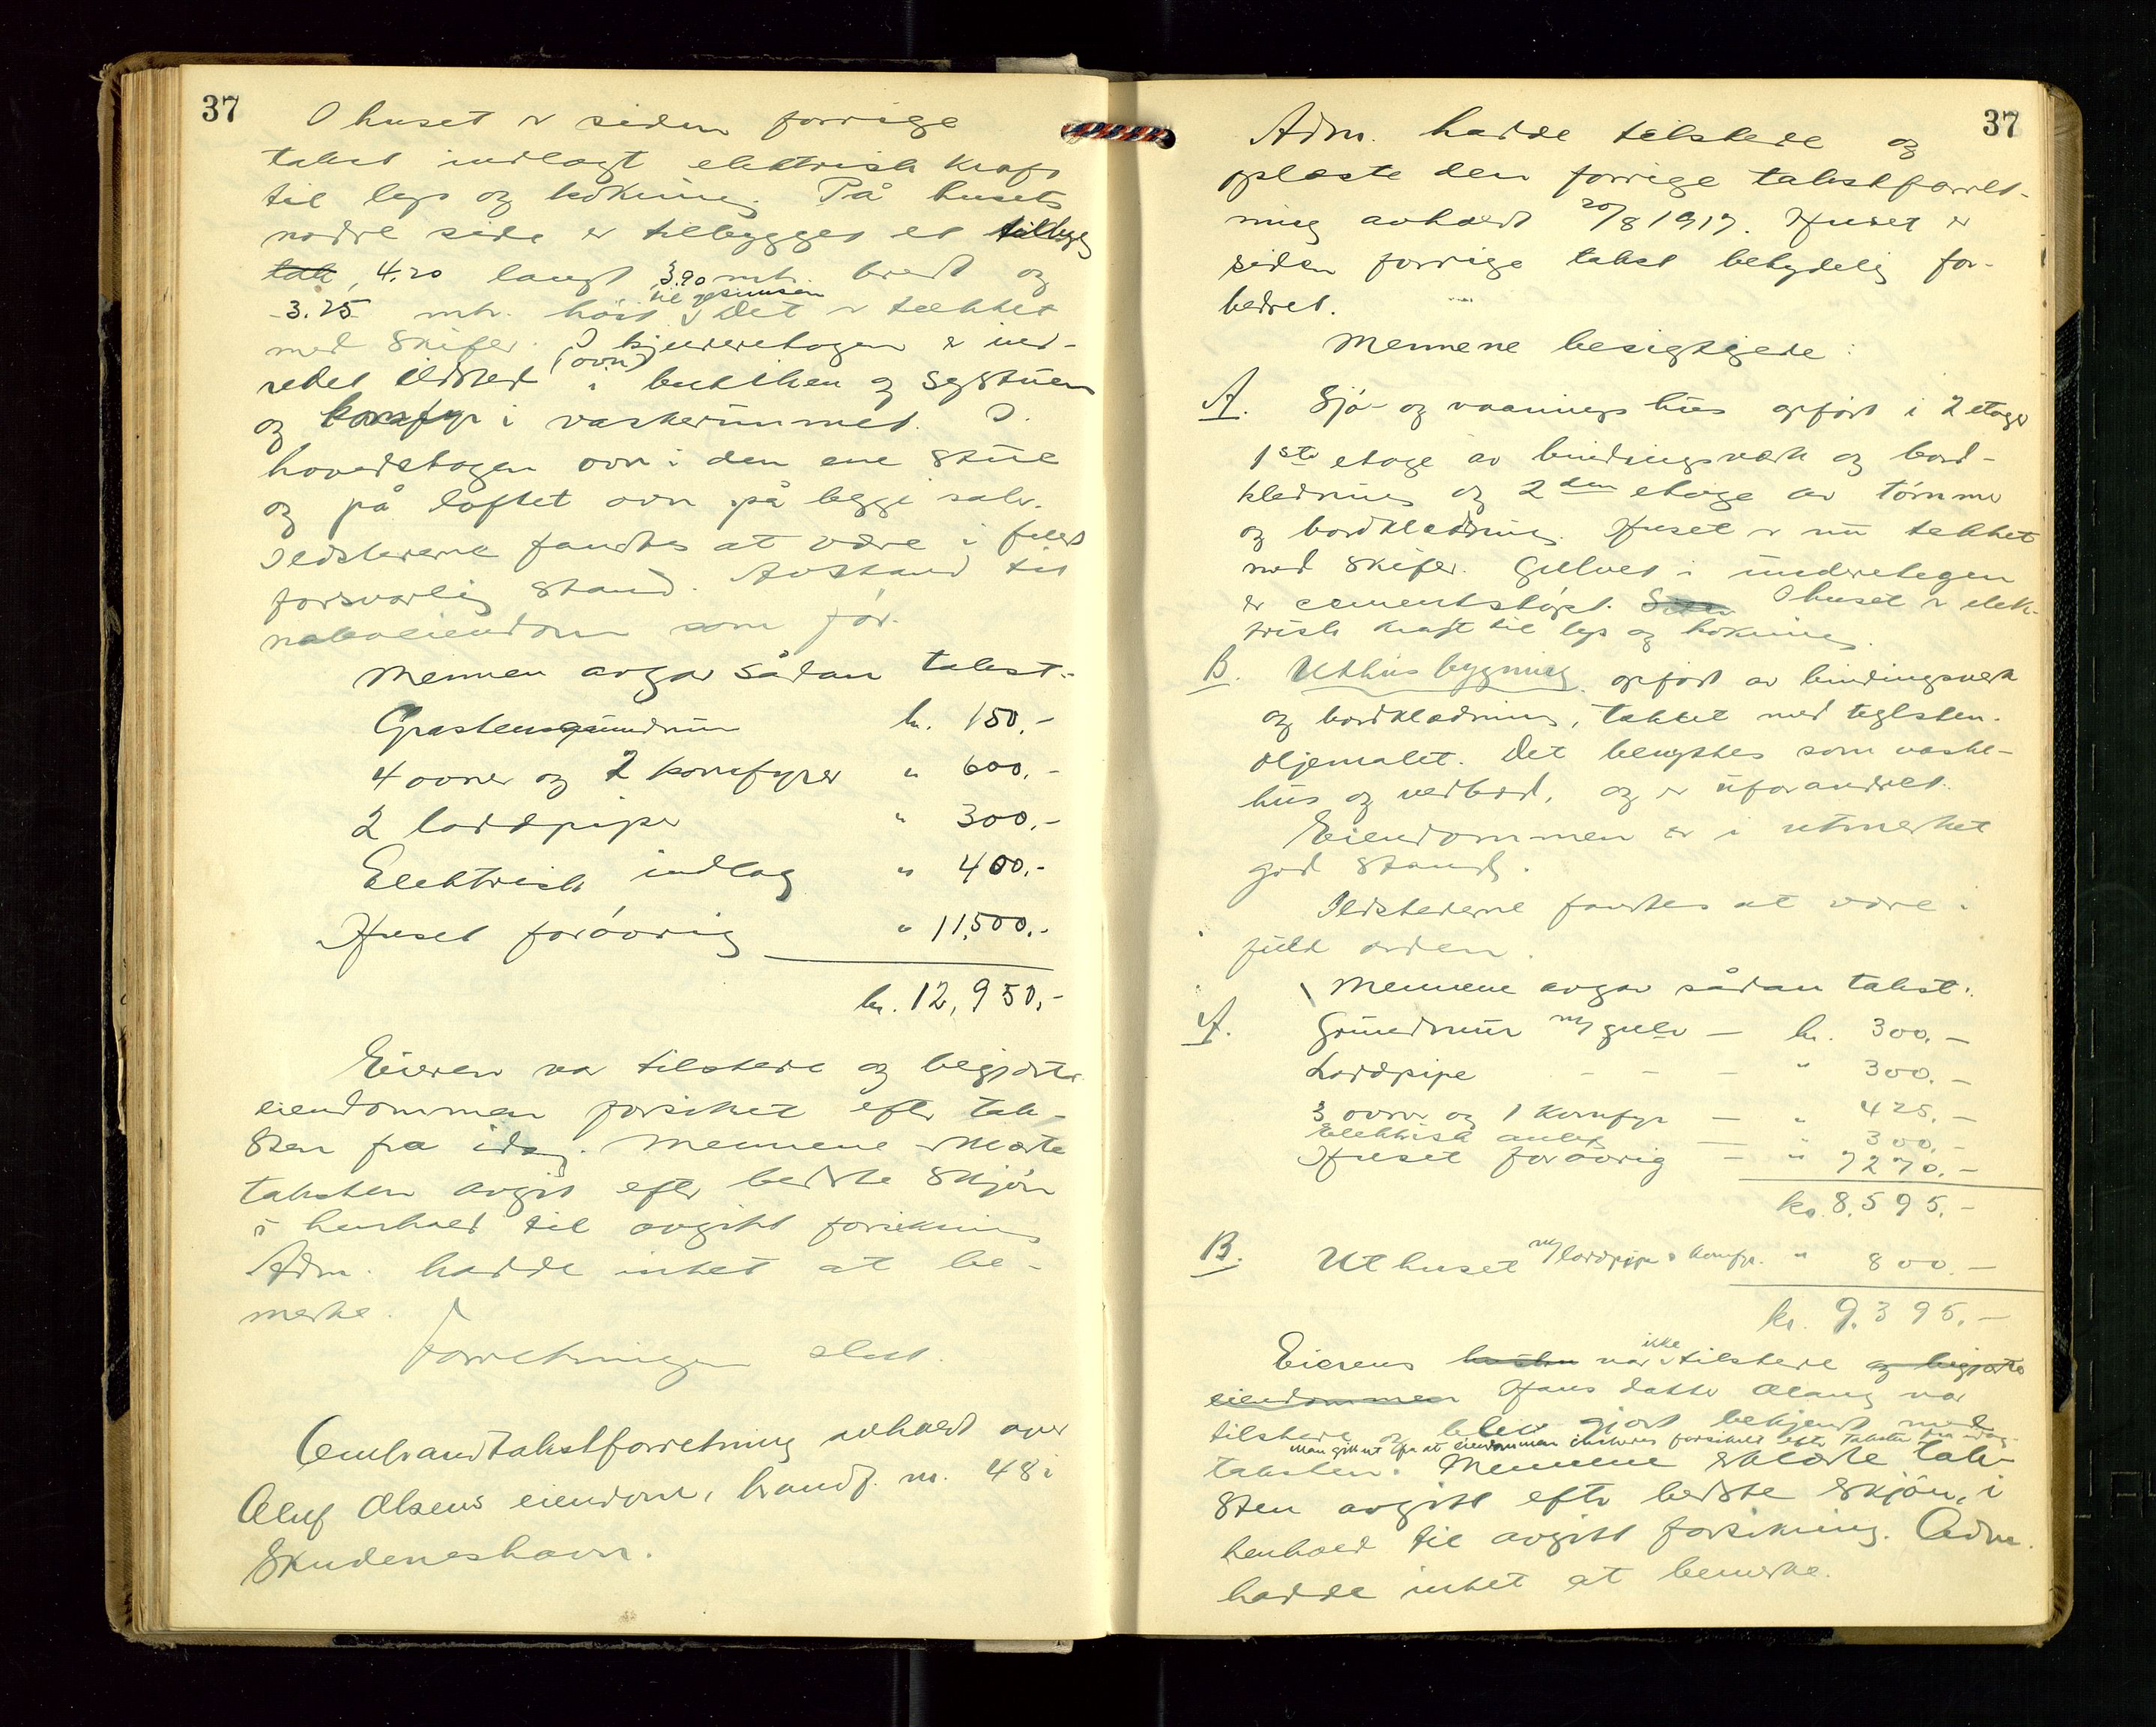 37
I huset er siden forrige
takst indlagt elektrisk kraft
til lys og kokning. På husets
nordre side er tilbygget et tilbyg
tak, 4.20 langt, 3.90 mtr. bredt og
3.25 mtr. høit til gesimsen Det er tækket
med skifer. I kjelderetagen er ind-
redet ildsted (ovn) i butikken og systuen
og komfyr i vaskerummet. I
hovedetagen ovn i den ene stue
og på loftet ovn på begge saler.
Ildstederne fandtes at være i fuldt
forsvarlig stand. Avstand til
naboeiendom som før.
Mennen avgav sådan takst:
Grastensgrundmur kr. 150.-
4 ovner og 2 komfyrer " 600.-
2 loddpiper " 300.-
Elektrisk indlæg " 400.-
Huset forøvrig " 11,500.-
kr. 12,950.-
Eieren var tilstede og begjærte
eiendommen forsikret efter tak-
sten fra idag. Mennene erklærte
taksten avgit efter bedste skjøn
i henhold til avgitt forsikring
Adm. hadde intet at be-
merke.
Forretningen slutt.
Ombrandtakstforretning avholdt over
Oluf Olsens eiendom, brandf. nr. 48 i
Skudeneshavn.
37
Adm. hadde tilstede og
oplæste den forrige takstforret-
ning avholdt 20/8 1917. Huset er
siden forrige takst betydelig for-
bedret.
Mennene besigtigede:
A. Sjø- og vaaningshus opført i 2 etager
1ste etage av bindingsværk og bord-
klædning og 2den etage av tømmer
og bordklædning. Huset er nu tekket
med skifer. Gulvet i underetagen
er cementstøpt. I huset er elek-
trisk kraft til lys og kokning.
B. Uthusbygning opført av bindingsverk
og bordklædning, takket med teglsten.
oljemalet. Det benyttes som vaske-
hus og vedbod, og er uforandret.
Eiendommen er i utmerket
god stand.
Ildstederne fandtes at være i
fuld orden.
Mennene avgav sådan takst:
A. Grundmur m/ gulv - kr. 300.-
Loddpipe - - - " 300.-
3 ovner og 1 komfyr - " 425.-
Elektrisk anlæg - " 300.-
Huset forøvrig - " 7270.-
kr. 8.595.-
B. Uthuset m/ loddpipe & komfyr. " 800.-
kr. 9.395.-
Eierens hustru var ikke tilstede og begjærte
eiendommen Hans datter Olaug var
tilstede og blev gjort bekjendt med
man gikk ut fra at eiendommen ønskes forsikret efter taksten fra idag.
taksten. Mennene erklærte tak-
sten avgitt efter bedste skjøn, i
henhold til avgitt forsikring. Adm.
hadde intet at bemerke.